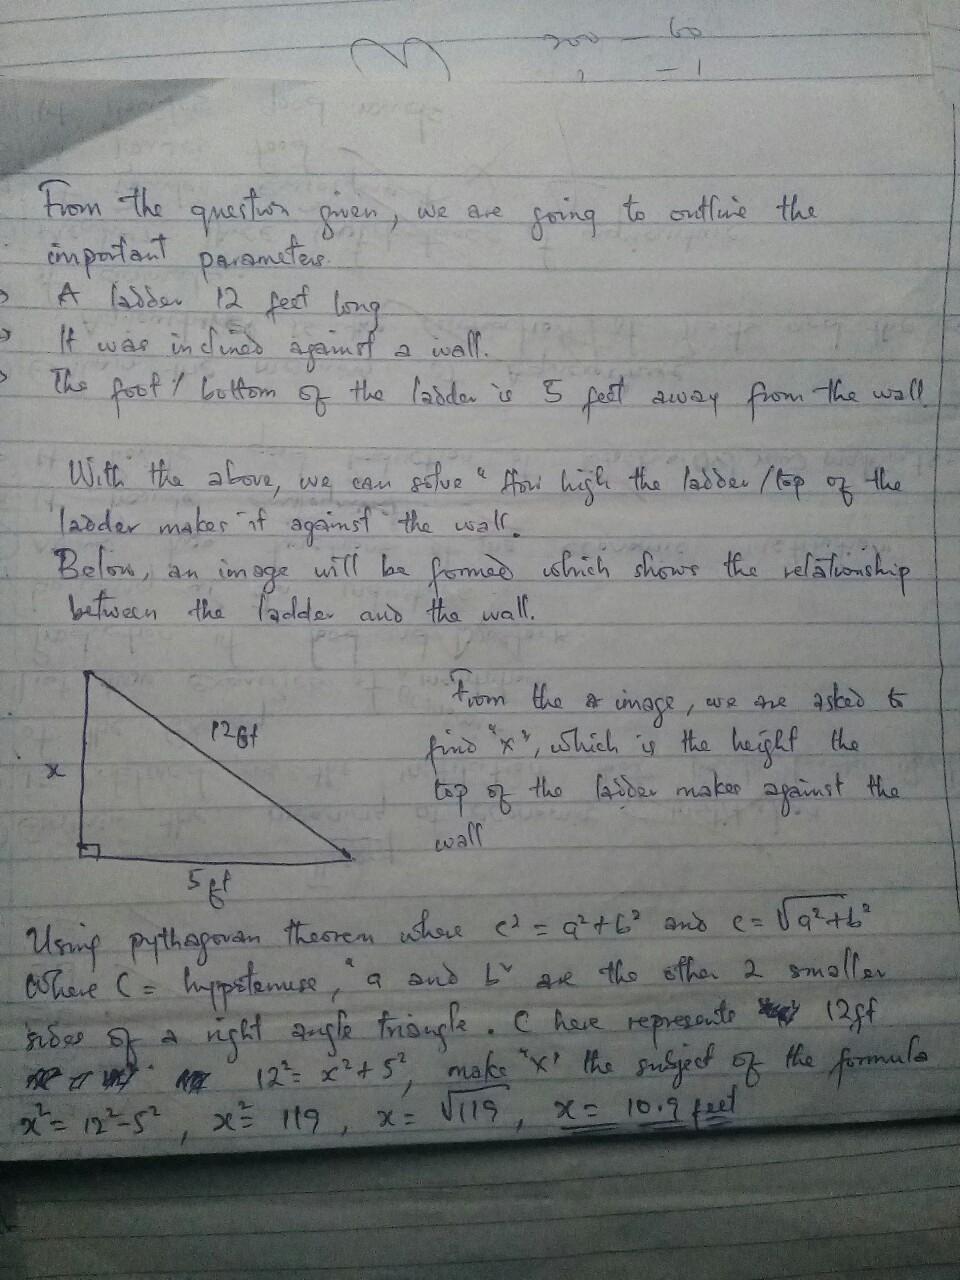 200 - 60
- 1
From the question given, we are going to outline the
important parameters.
A ladder 12 feet long
It was inclined against a wall.
The foot/bottom of the ladder is 5 feet away from the wall.
With the above, we can solve "How high the ladder/top of the
ladder makes it against the wall.
Below, an image will be formed which shows the relationship
between the ladder and the wall.
12ft
x
5ft
From the image, we are asked to
find "x", which is the height the
top of the ladder makes against the
wall
Using pythagorean theorem where c² = a²+b² and c = √a²+b²
Where C = hyppotenuse, "a and b" are the other 2 smaller
sides of a right angle triangle. C here represents 12ft
12² = x²+5², make "x" the subject of the formula
x² = 12²-5², x² = 119, x = √119, x = 10.9 feet